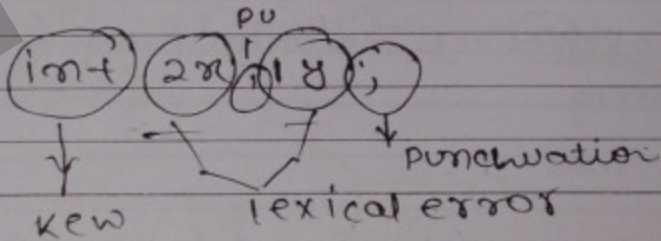 PU
int 2x , 1y ;
Punchuation
Kew lexical error